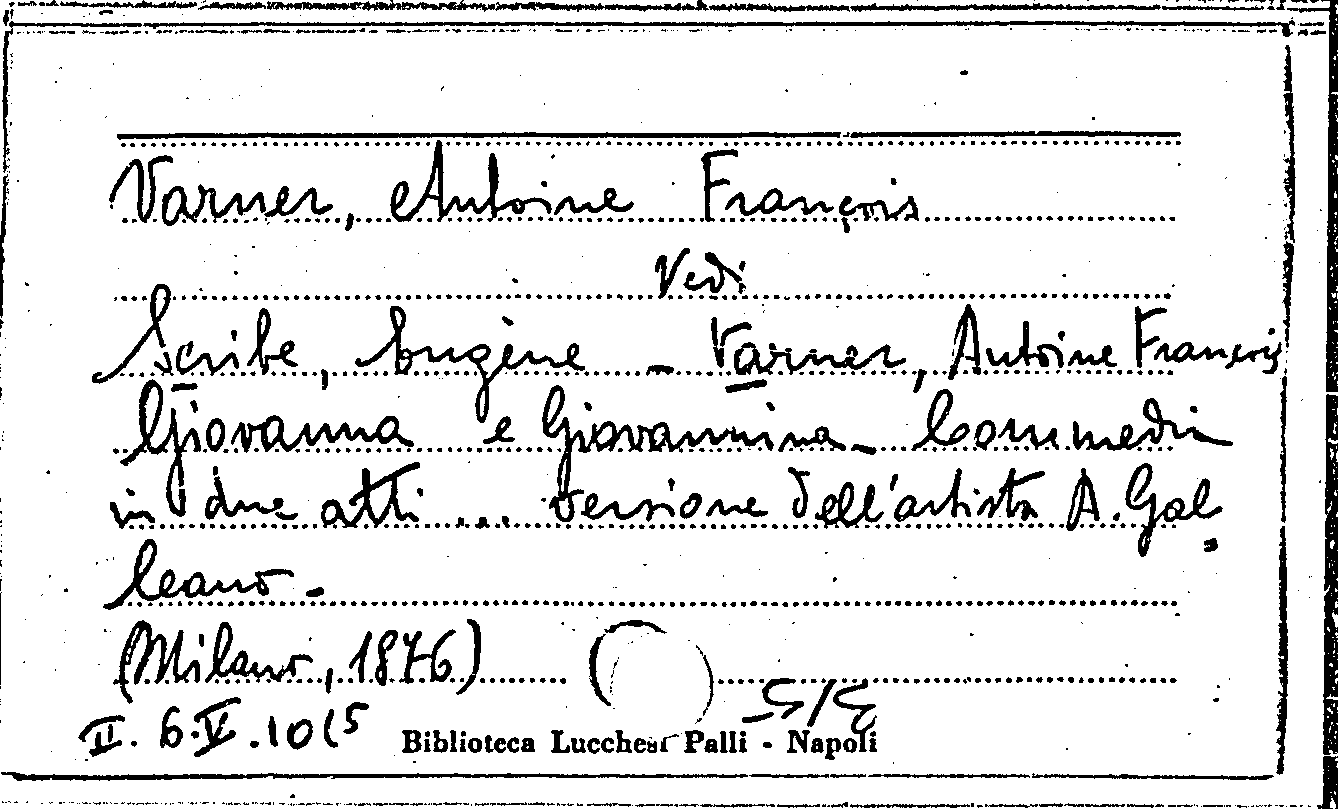 Varner, Antoine François
Vedi
Scribe, Eugène - Varner, Antoine François
Giovanna e Giovannina - Commedia
in due atti ... versione dell'artista A. Gal
leano -
(Milano, 1876)
II. 6. V. 10 (5
Biblioteca Lucchesi Palli - Napoli